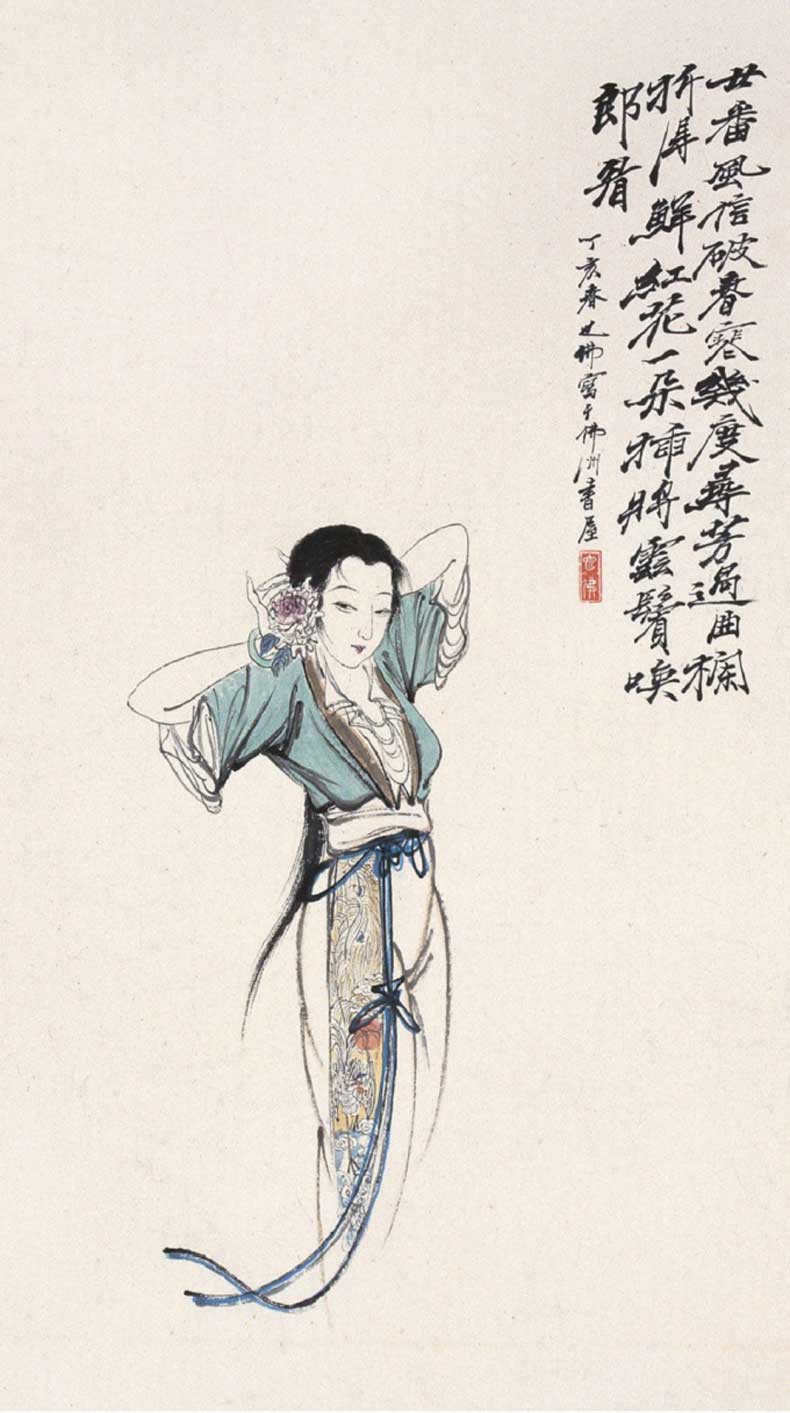 廿番風信破春寒幾度尋芳過曲欄
折得鮮紅花一朵插將雲鬢喚
郎看
丁亥春之佛寫于佛洲書屋